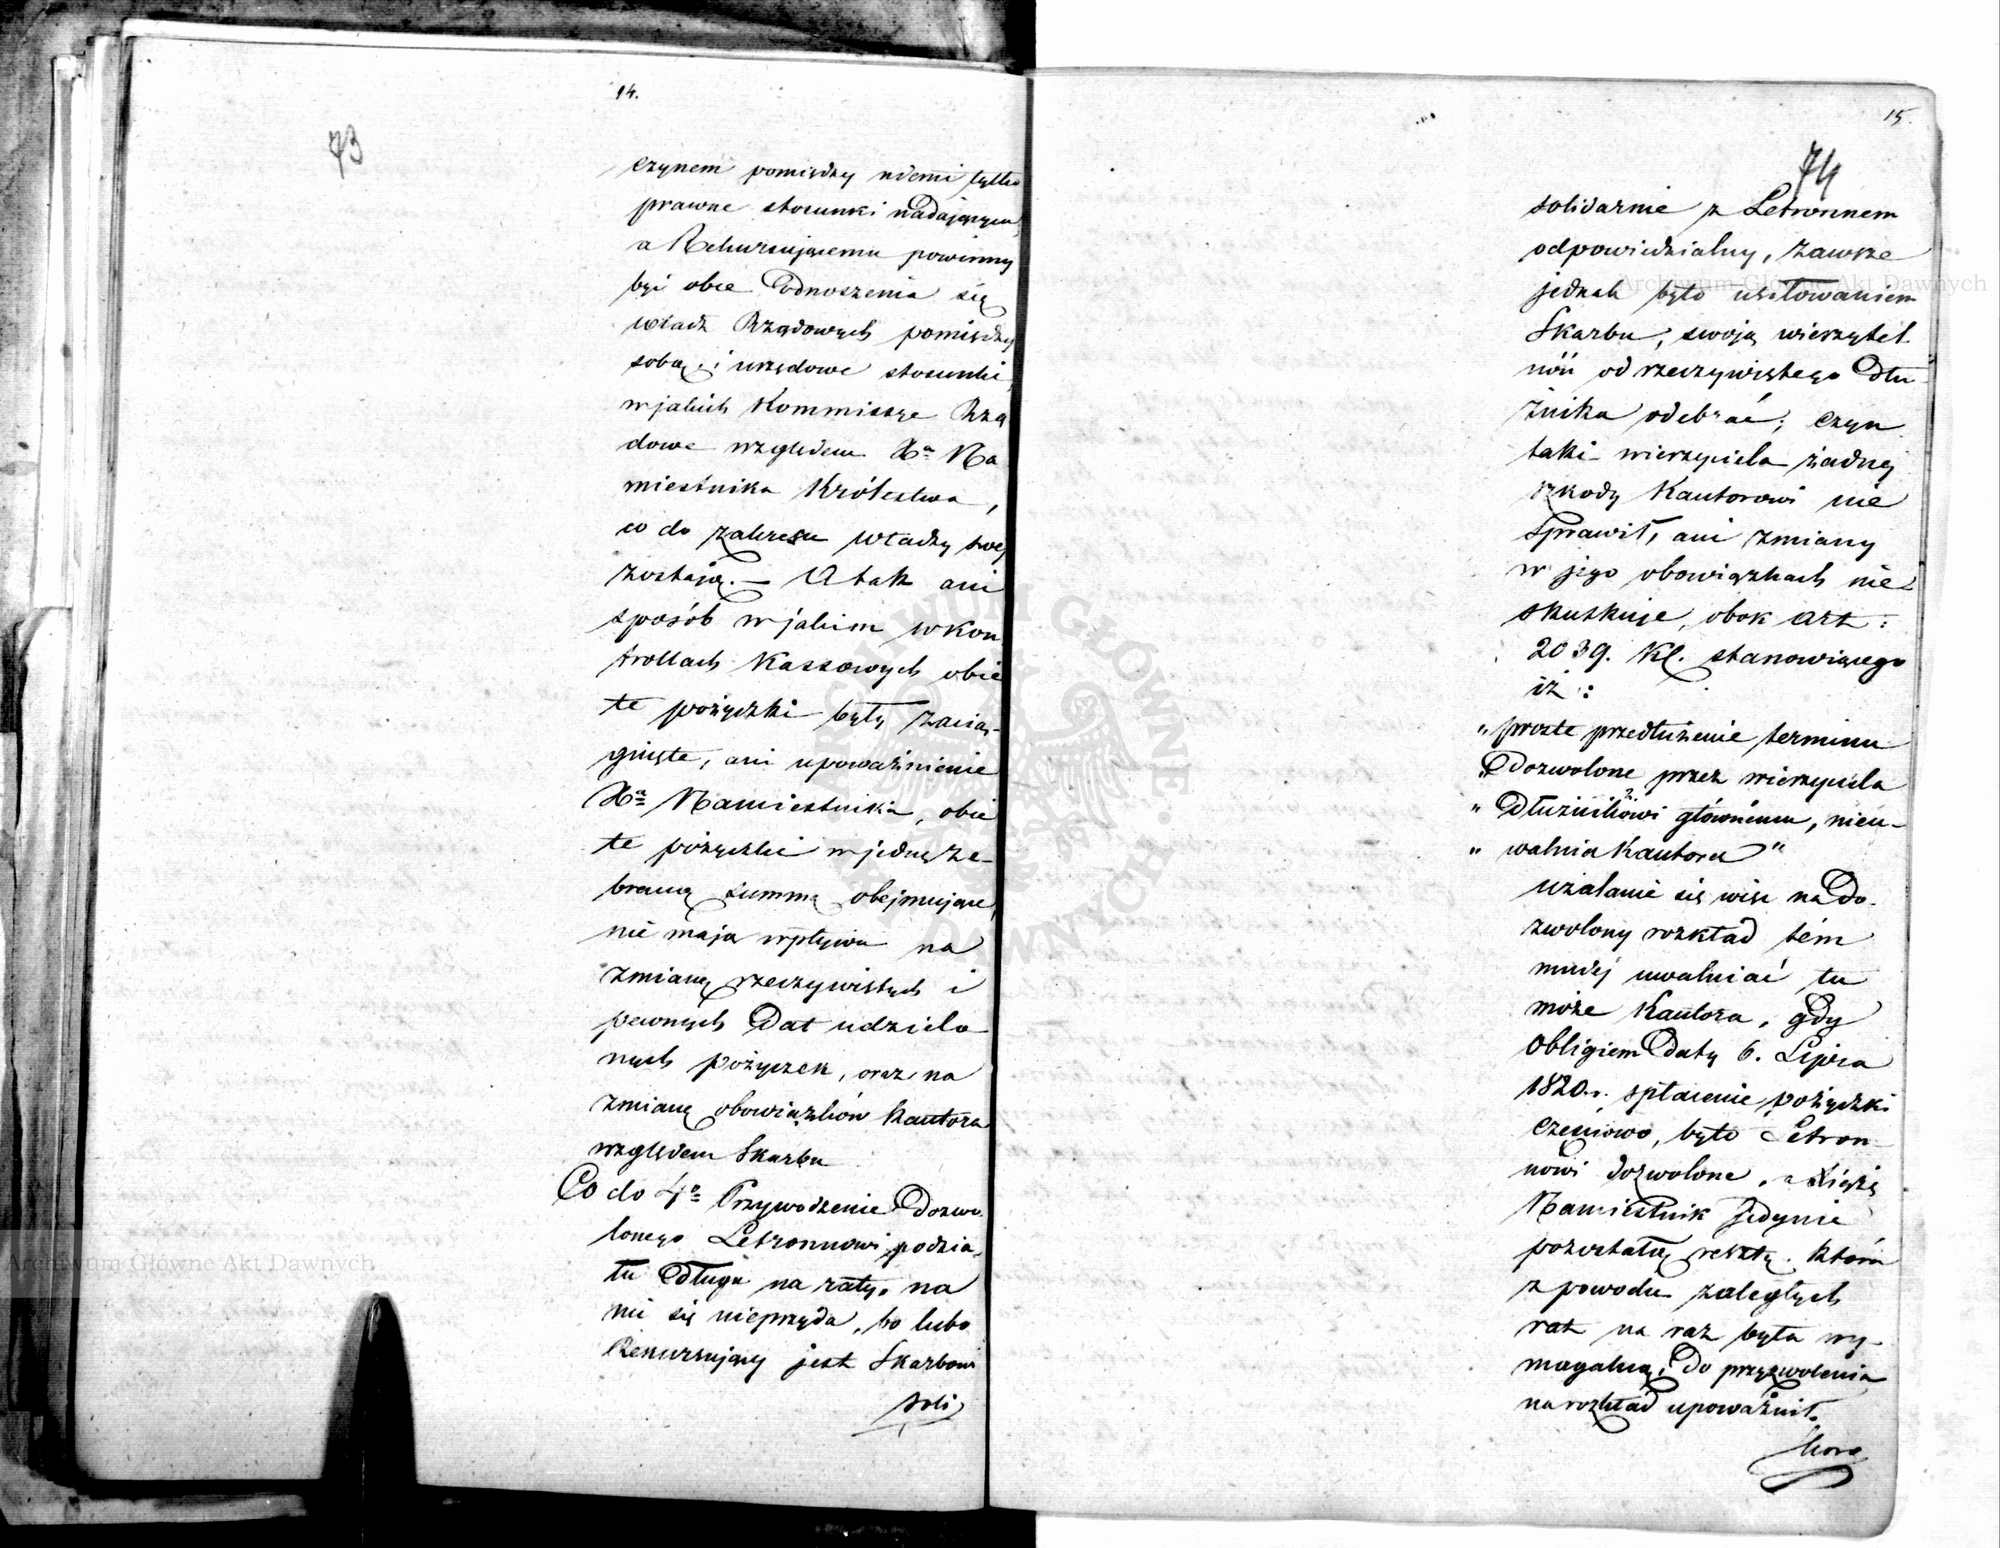 14.
73
czynem pomiędzy niemi tylko
prawne stosunki nadającym,
a Rekursującemu powinny
być obce odnoszenia się
władz Rządowych pomiędzy
sobą, i urzędowe stosunki,
w jakich Kommissye Rzą
dowe względem Xa Na
miestnika Królestwa,
co do zakresu władzy swej
zostają. — A tak ani
sposób w jakim w kon
trollach Kassowych obie
te pożyczki były zacią-
gnięte, ani upoważnienie
Xa Namiestnika, obie
te pożyczki w jedną ze-
braną summę obejmujące,
nie mają wpływu na
zmianę rzeczywistych i
pewnych Dat udziela
nych pożyczek, oraz na
zmianę obowiązków Kautora
względem Skarbu
Co do 4o Przywodzenie Dozwo
lonego Letronnowi podzia-
łu Długu na raty, na
nic się nieprzyda, bo lubo
Rekursujący jest Skarbowi
soli
15.
74
solidarnie z Letronnem
odpowiedzialny, zawsze
jednak było usiłowaniem
Skarbu, swoją wierzytel
ność od rzeczywistego Dłu-
żnika odebrać; czyn
taki wierzyciela żadnej
szkody Kautorowi nie
sprawił, ani zmiany
w jego obowiązkach nie
skutkuje, obok art:
2039. Kc. stanowiącego
iż:
„ proste przedłużenie terminu
„ Dozwolone przez wierzyciela
„ Dłużnikowi głównemu, nieu-
„ walnia Kautora"
użalanie się więc na Do-
zwolony rozkład tém
mniej uwalniać tu
może Kautora, gdy
obligiem Daty 6. Lipca
1820. r. spłacenie pożyczki
częściowo, było Letron
nowi dozwolone, a Xiąże
Namiestnik jedynie
pozostałą resztę, która
z powodu zaległych
rat na raz była wy-
magalną, Do przyzwolenia
na rozkład upoważnił.
Archiwum Główne Akt Dawnych
Archiwum Główne Akt Dawnych
ARCHIWUM GŁÓWNE AKT DAWNYCH